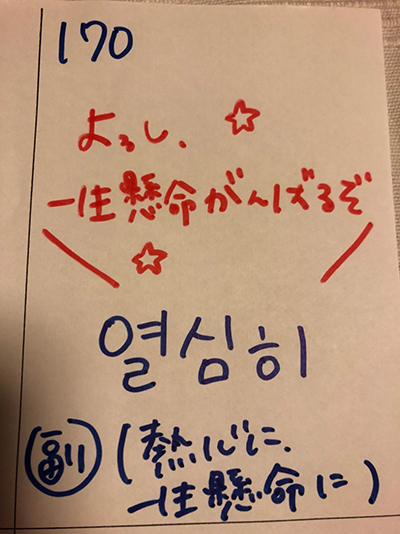 170
よろし、☆
一生懸命がんばるぞ
☆
열심히
副 (熱心に、
一生懸命に)